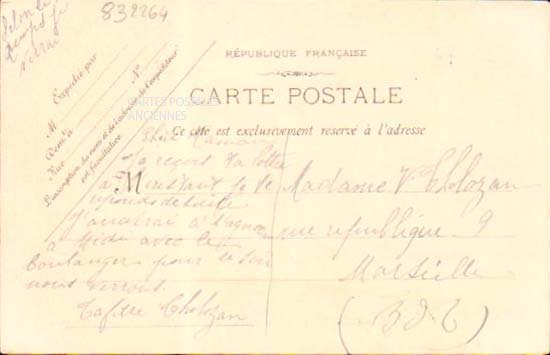 832264
Selon le
temps je
verrai
RÉPUBLIQUE FRANÇAISE
CARTE POSTALE
CARTES POSTALES
ANCIENNES
Ce côté est exclusivement reservé à l'adresse
Expédiée par
M
Dem.t à
Rue
N°
L'inscription du nom et de l'adresse de l'expéditeur
est facultative
Chère Maman
Je reçois ta lettre
à l'instant je te
réponds de suite
J'arriverai à
à Midi avec le
boulanger pour le soir
nous verrons.
Cholozan
M
Madame Vve Cholozan
rue republique 9
Marseille
(B. d. R)